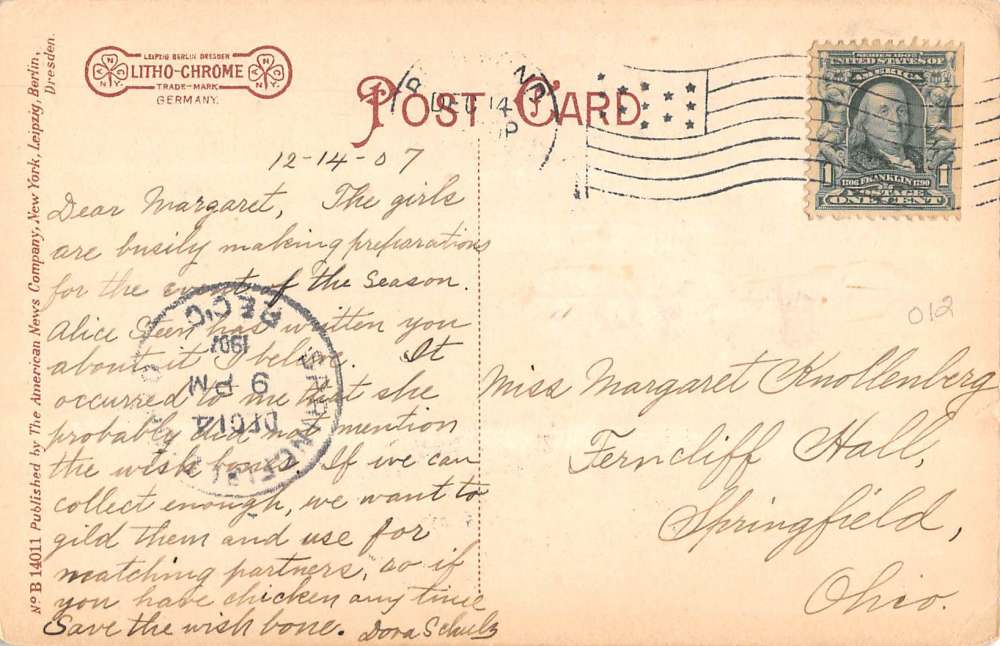 LEIPZIG BERLIN DRESDEN
LITHO-CHROME
TRADE-MARK
GERMANY.
POST CARD
DEC 14
SERIES 1902
UNITED STATES OF
AMERICA
1 1706 FRANKLIN 1790 1
POSTAGE
ONE CENT
No B 14011 Published by The American News Company, New York, Leipzig, Berlin,
Dresden.
12-14-07
Dear Margaret, The girls
are busily making preparations
for the event of the Season.
Alice has written you
about it I believe. It
occurred to me that she
probably did not mention
the wish bones. If we can
collect enough, we want to
gild them and use for
matching partners, so if
you have chicken any time
Save the wish bone. Dora Schulz
SPRINGFIELD
DEC 14
9 PM
1907
REC'D
012
Miss Margaret Knollenberg
Ferncliff Hall,
Springfield,
Ohio.